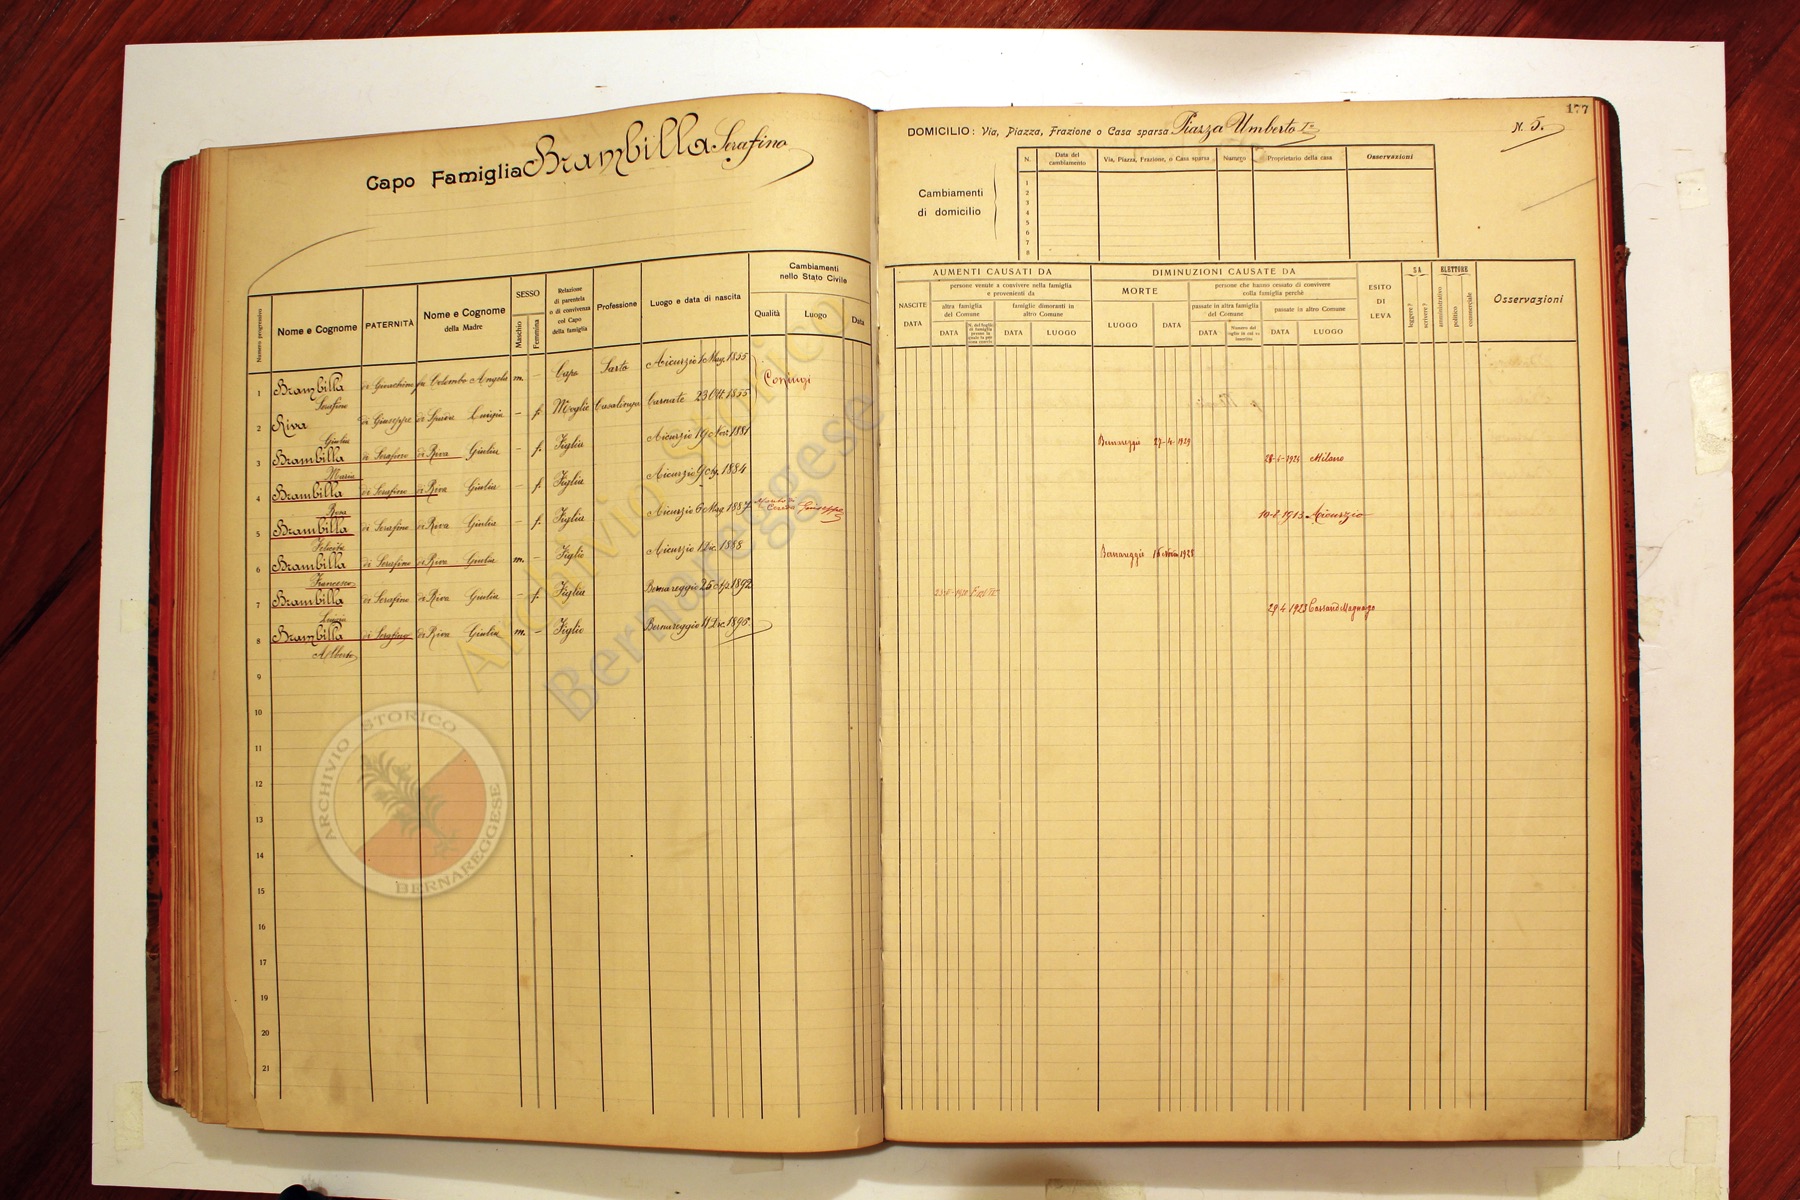 Capo Famiglia Brambilla Serafino
Numero progressivo
Nome e Cognome
PATERNITÀ
Nome e Cognome
della Madre
SESSO
Maschio
Femmina
Relazione
di parentela
o di convivenza
col Capo
della famiglia
Professione
Luogo e data di nascita
Cambiamenti
nello Stato Civile
Qualità
Luogo
Data
1 Brambilla di Gioachino fu Colombo Angela m. – Capo Sarto Aicurzio 1 Mag. 1855
Serafino
Coniugi
2 Riva di Giuseppe di Spada Luigia – f. Moglie Casalinga Carnate 23 Ott. 1855
Giulia
3 Brambilla di Serafino di Riva Giulia – f. Figlia Aicurzio 19 Nov. 1881
Maria
4 Brambilla di Serafino di Riva Giulia – f. Figlia Aicurzio 9 1884
Rosa
5 Brambilla di Serafino di Riva Giulia – f. Figlia Aicurzio 6 Mag. 1887 Giuseppe
Felicita
6 Brambilla di Serafino di Riva Giulia m. – Figlio Aicurzio 1 Dic. 1888
Francesco
7 Brambilla di Serafino di Riva Giulia – f. Figlia Bernareggio 25 1892
Luigia
8 Brambilla di Serafino di Riva Giulia m. – Figlio Bernareggio 11 Dic. 1895
Alberto
9
10
11
12
13
14
15
16
17
18
19
20
21
177
DOMICILIO: Via, Piazza, Frazione o Casa sparsa Piazza Umberto I° N. 5.
Cambiamenti
di domicilio
N.
Data del
cambiamento
Via, Piazza, Frazione, o Casa sparsa
Numero
Proprietario della casa
Osservazioni
1
2
3
4
5
6
7
8
NASCITE
DATA
AUMENTI CAUSATI DA
persone venute a convivere nella famiglia
e provenienti da
altra famiglia
del Comune
DATA
famiglie dimoranti in
altro Comune
DATA
LUOGO
DIMINUZIONI CAUSATE DA
MORTE
LUOGO
DATA
persone che hanno cessato di convivere
colla famiglia perchè
passate in altra famiglia
del Comune
DATA
passate in altro Comune
DATA
LUOGO
ESITO
DI
LEVA
SA
leggere?
scrivere?
ELETTORE
amministrativo
politico
commerciale
Osservazioni
Bernareggio 27-4-1929
Milano
1913 Aicurzio
Bernareggio 1928
29-4 1923 Cassano Magnago
Archivio Storico
Bernareggese
ARCHIVIO STORICO
BERNAREGGESE